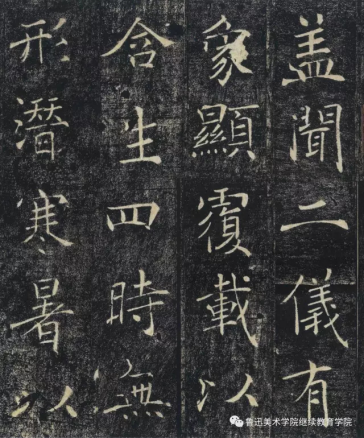 盖聞二儀有
象顯覆載以
含生四時無
形潛寒暑以
鲁迅美术学院继续教育学院